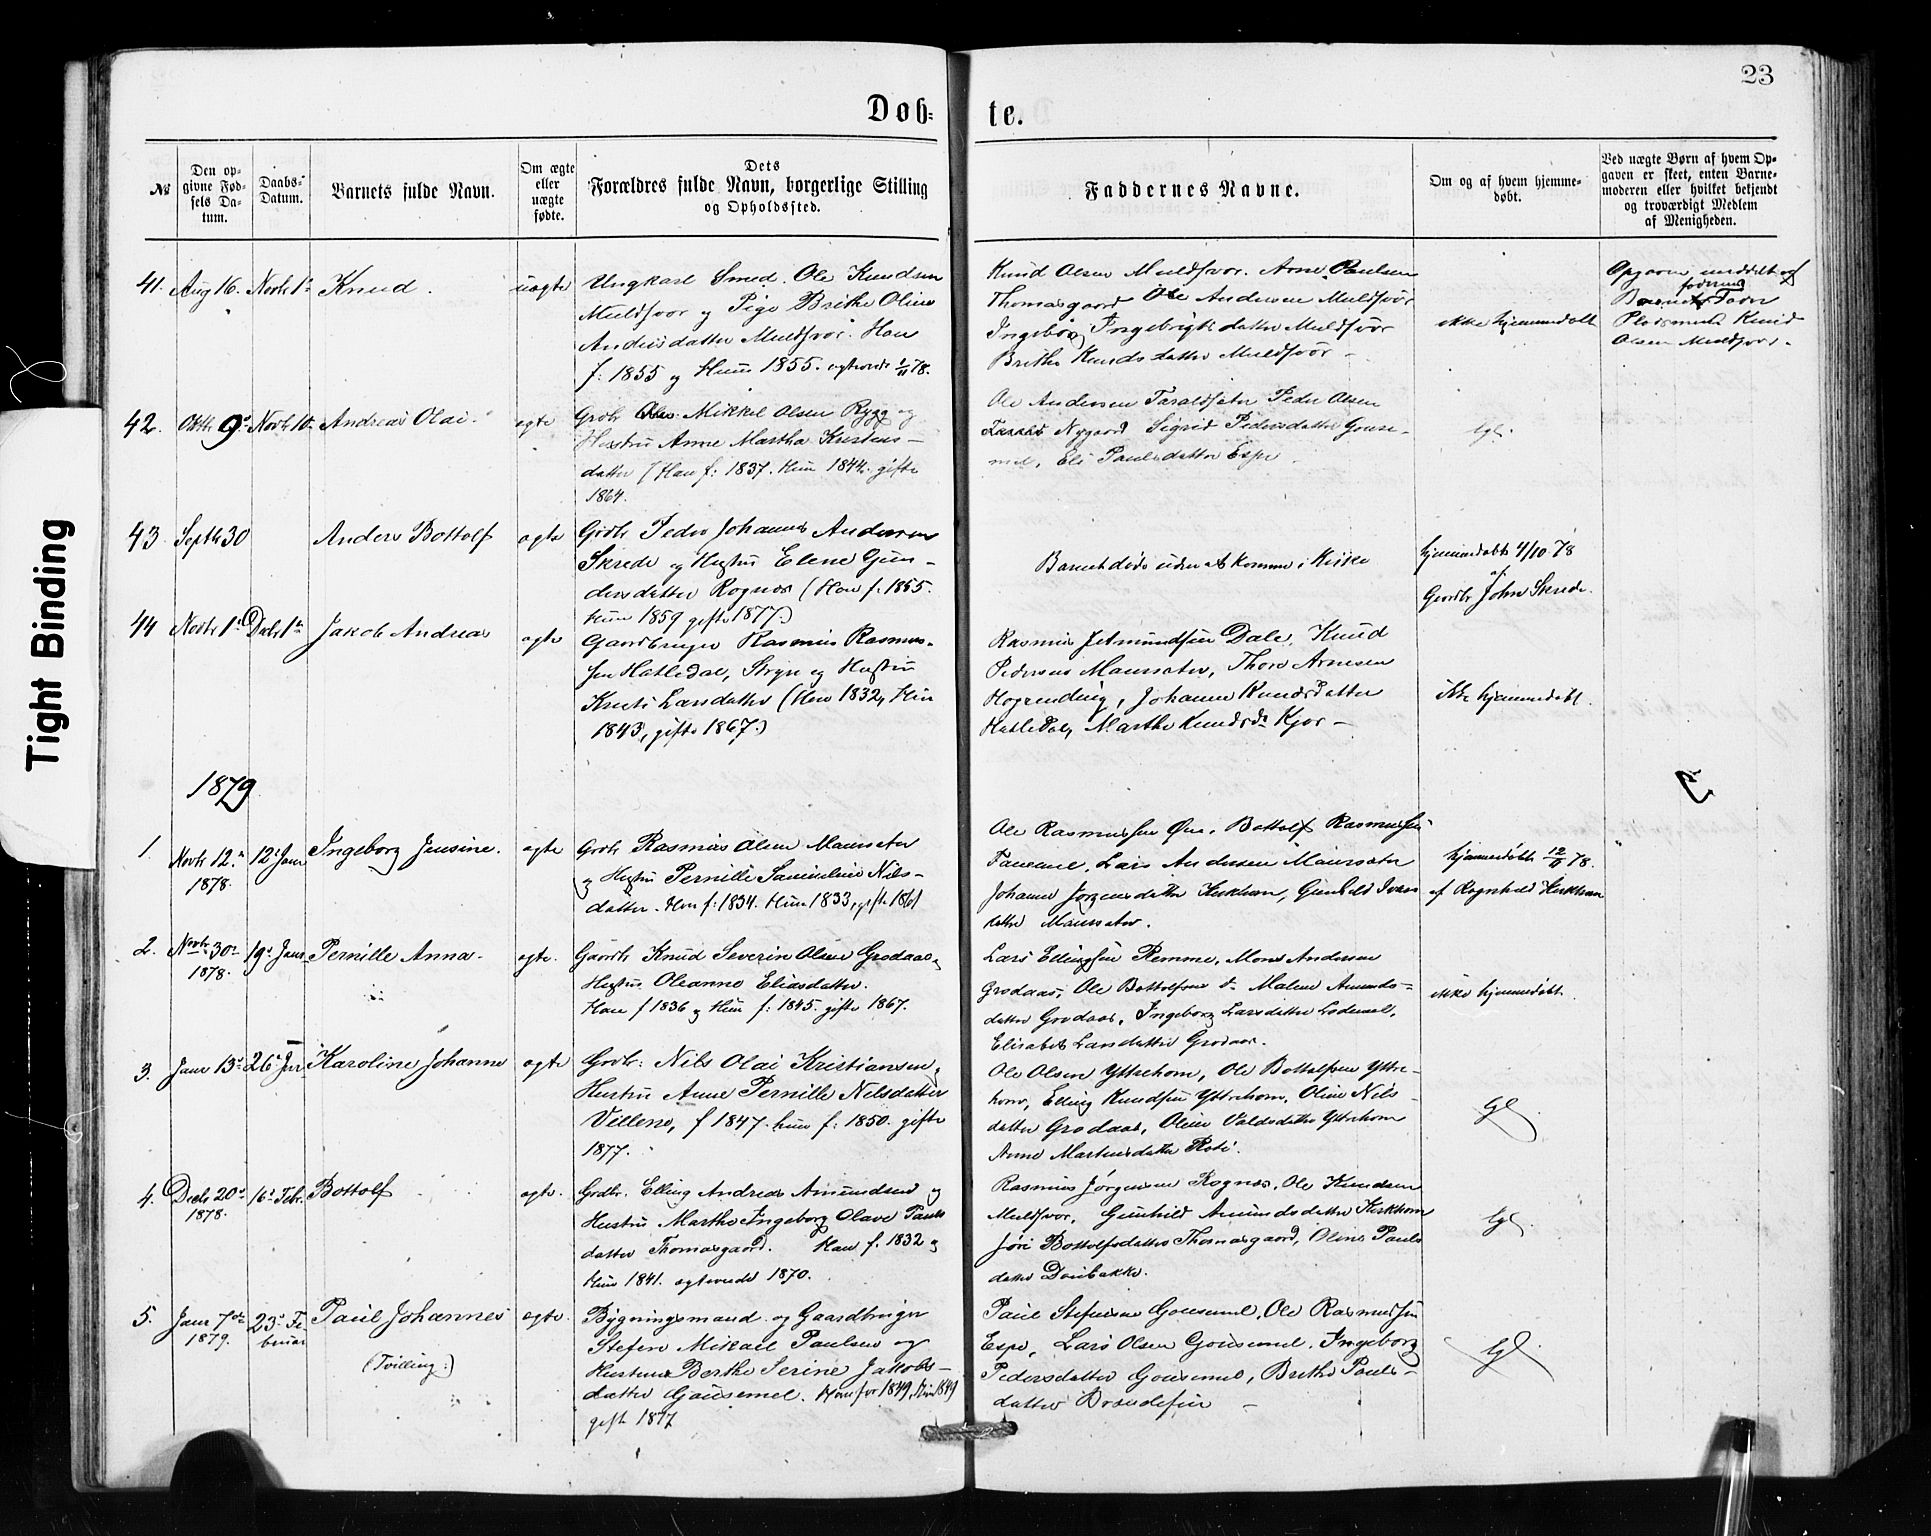 23
Døb-
te.
Tight Binding
№
Den op-
givne Fød-
sels Da-
tum.
Daabs-
Datum.
Barnets fulde Navn.
Om ægte
eller
uægte
fødte.
Dets
Forældres fulde Navn, borgerlige Stilling
og Opholdssted.
Faddernes Navne.
Om og af hvem hjemme-
døbt.
Ved uægte Børn af hvem Op-
gaven er skeet, enten Barne-
moderen eller hvilket bekjendt
og troværdigt Medlem
af Menigheden.
41. Aug 16. Novbr 1ste Knud. uægte
Ungkarl Smed. Ole Knudsen
Muldsvor og Pige Brithe Oline
Andersdatter Muldsvor. Han
f: 1855 og Hun 1855. egteviede 1/11 78.
Knud Olsen Muldsvor. Arne Paulsen
Thomasgaard Ole Andersen Muldsvor
Ingeborg Ingebrigtsdatter Muldsvor
Brithe Knudsdatter Muldsvor –
ikke hjemmedøbt
Opgaven meddelt af
Barnets Fader
Pladsmand Knud
Olsen Muldsvor.
42. Oktbr 9de Novbr 10. Andreas Olai. egte
Grdbr Mikkel Olsen Rygg og
Hustru Anne Martha Kristens-
datter (Han f: 1837. Hun 1844. gifte
1864.
Ole Andersen Taraldsæter Peder Olsen
Nygaard Sigrid Pedersdatter Gouse-
mel, Eli Paulsdatter Espe.
lgl.
43. Septbr 30 Anders Bottolf egte
Grdbr Peder Johannes Andersen
Skrede og Hustru Elene Gun-
dersdatter Rognøs (Han f. 1855.
Hun 1859 gifte 1877.)
Barnet døde uden at komme i Kirke
hjemmedøbt 4/10 78
af
Gaardbr John Skrede.
44 Novbr 1ste Decbr 1ste Jakob Andreas egte
Gaardbruger Rasmus Rasmus-
sen Hatledal, Stryn og Hustru
Kristi Larsdatter (Han 1832, Hun
1843, gifte 1867.)
Rasmus Jetmundsen Dale, Knud
Pedersen Maursæter, Thore Arnesen
Hogrending, Johanne Knudsdatter
Hatledal, Marthe Knudsdr Kjøs –
ikke hjemmedøbt.
1879
1. Novbr 12. 1878. 12te Janr Ingeborg Jensine. egte
Grdbr Rasmus Olsen Maursæter
og Hustru Pernille Samueline Nils-
datter. Han f: 1834. Hun 1833, gifte 1861
Ole Rasmussen Øen. Bottolf Rasmussen
Taneme, Lars Andersen Maursæter
Johanne Jørgensdatter Kirkhorn, Gunhild Ivers
datter Maursæter.
hjemmedøbt 12/11 78.
af Ragnhild Kirkhorn
2. Novbr 30te 1878. 19de Janr Pernille Anna. egte.
Gaardbr Knud Severin Olsen Grodaas og
Hustru Oleanne Eliasdatter.
Han f 1836 og Hun f: 1845. gifte 1867.
Lars Ellingsen Remme, Mons Andersen
Grodaas, Ole Bottolfsen do Malene Amunds-
datter Grodaas, Ingeborg Larsdatter Lødemel,
Elisabet Larsdatter Grodaas.
ikke hjemmedøbt.
3. Janr 13de 26de Jnr Karoline Johanne egte
Grdbr: Nils Olai Kristiansen og
Hustru Anne Pernille Nilsdatter
Villenø, f 1847. hun f: 1850. gifte
1877.
Ole Olsen Yttrehorn, Ole Bottolfsen Yttre-
horn, Elling Knudsen Yttrehorn, Oline Nils
datter Grodaas, Oline Valdsdatter Yttrehorn
Anne Martinsdatter Roti.
lgl
4. Decbr 20de 1878. 16de Febr. Bottolf egte.
Grdbr. Elling Andreas Amundsen og
Hustru Marthe Ingeborg Olave Pauls
datter Thomasgaard. Han f. 1832 og
Hun 1841. egteviede 1870.
Rasmus Jørgensen Rognøs, Ole Knudsen
Muldsvor, Gunhild Amundsdatter Kirkhorn
Jøri Bottolfsdatter Thomasgaard, Oline Pauls
datter Dovebakke.
lgl.
5. Janr 7de 1879. 23de Fe-
bruar
Paul Johannes egte.
(Tvilling:)
Bygningsmand og Gaardbruger
Stefen Mikael Paulsen og
Hustru Berthe Serine Jakobs-
datter Gousemel. Han før 1849, Hun 1849
gift 1877
Paul Stefensen Gousemel, Ole Rasmussen
Espe, Lars Olsen Gousemel, Ingeborg
Pedersdatter Gousemel, Brithe Pauls-
datter Brændesen –
lgl